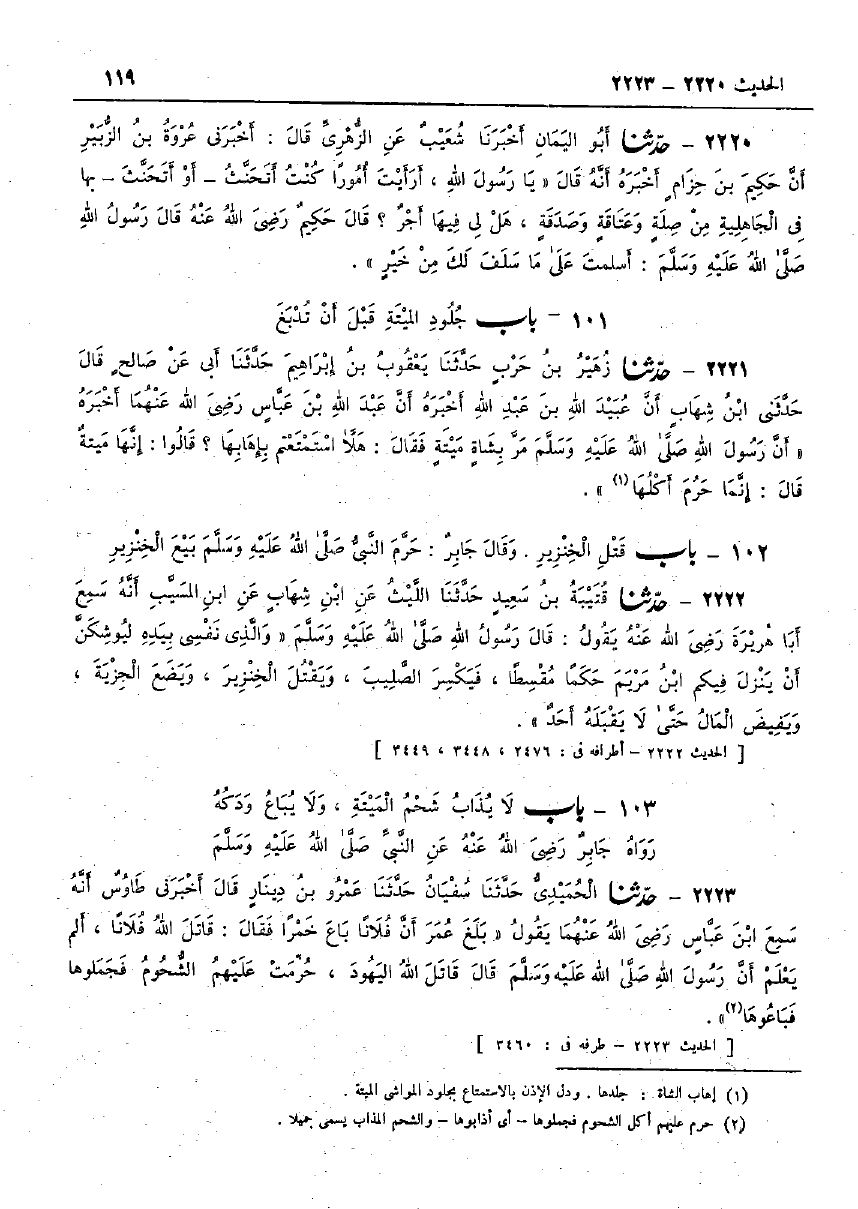 الحديث ٢٢٢٠ – ٢٢٢٣ ١١٩
٢٢٢٠ – حدّثنا أَبُو اليَمَانِ أَخْبَرَنَا شُعَيْبٌ عَنِ الزُّهْرِيِّ قَالَ : أَخْبَرَنى عُرْوَةُ بنُ الزُّبَيْرِ
أَنَّ حَكِيمَ بنَ حِزَامٍ أَخْبَرَهُ أَنَّهُ قَالَ « يَا رَسُولَ اللهِ ، أَرَأَيْتَ أُمُورًا كُنْتُ أَتَحَنَّثُ – أَوْ أَتَحَنَّتُ – بها
فِى الْجَاهِلِيةِ مِنْ صِلَةٍ وَعَتَاقَةٍ وَصَدَقَةٍ ، هَلْ لِى فِيهَا أَجْرٌ ؟ قَالَ حَكِيمٌ رَضِىَ اللهُ عَنْهُ قَالَ رَسُولُ اللهِ
صَلَّىٰ اللهُ عَلَيْهِ وَسَلَّمَ : أَسلمتَ عَلَىٰ مَا سَلَفَ لَكَ مِنْ خَيْرٍ » .
١٠١ – باب جُلُودِ المَيْتَةِ قَبْلَ أَنْ تُدْبَغَ
٢٢٢١ – حدّثنا زُهَيْرُ بنُ حَرْبٍ حَدَّثَنَا يَعْقُوبُ بنُ إِبْرَاهِيمَ حَدَّثَنَا أَبى عَنْ صَالحٍ قَالَ
حَدَّثَنى ابْنُ شِهَابٍ أَنَّ عُبَيْدَ اللهِ بنَ عَبْدِ اللهِ أَخْبَرَهُ أَنَّ عَبْدَ اللهِ بْنَ عَبَّاسٍ رَضِىَ الله عَنْهُمَا أَخْبَرَهُ
« أَنَّ رَسُولَ اللهِ صَلَّىٰ اللهُ عَلَيْهِ وَسَلَّمَ مَرَّ بِشَاةٍ مَيْتَةٍ فَقَالَ : هَلَّا اسْتَمْتَعْتم بِإِهَابِهَا ؟ قَالُوا : إِنَّهَا مَيتةٌ
قَالَ : إِنَّمَا حَرُمَ أَكْلُهَا(١) » .
١٠٢ – باب قَتْلِ الْخِنْزِيرِ . وَقَالَ جَابِرٌ : حَرَّمَ النَّبىُّ صَلَّىٰ اللهُ عَلَيْهِ وَسَلَّمَ بَيْعَ الْخِنْزِيرِ
٢٢٢٢ – حدّثنا قُتَيْبَةُ بنُ سَعِيدٍ حَدَّثَنَا اللَّيْثُ عَنِ ابْنِ شِهَابٍ عَنِ ابنِ المسَيَّبِ أَنَّهُ سَمِعَ
أَبَا هُرَيْرَةَ رَضِىَ الله عَنْهُ يَقُولُ : قَالَ رَسُولُ اللهِ صَلَّىٰ اللهُ عَلَيْهِ وَسَلَّمَ « وَالَّذِى نَفْسِى بِيَدِهِ لَيُوشِكَنَّ
أَنْ يَنْزِلَ فِيكم ابْنُ مَرْيَمَ حَكَمًا مُقْسِطًا ، فَيَكْسِرَ الصَّلِيبَ ، وَيَقْتُلَ الْخِنْزِيرَ ، وَيَضَعَ الْجِزْيَةَ ،
وَيَفِيضَ الْمَالُ حَتَّىٰ لَا يَقْبَلَهُ أَحَدٌ » .
[ الحديث ٢٢٢٢ – أطرافه فى : ٢٤٧٦ ، ٣٤٤٨ ، ٣٤٤٩ ]
١٠٣ – باب لَا يُذَابُ شَحْمُ الْمَيْتَةِ ، وَلَا يُبَاعُ وَدَكُهُ
رَوَاهُ جَابِرٌ رَضِىَ اللهُ عَنْهُ عَنِ النَّبىِّ صَلَّىٰ اللهُ عَلَيْهِ وَسَلَّمَ
٢٢٢٣ – حدّثنا الْحُمَيْدِىُّ حَدَّثَنَا سُفْيَانُ حَدَّثَنَا عَمْرُو بنُ دِينَارٍ قَالَ أَخْبَرَنى طَاوُسٌ أَنَّهُ
سَمِعَ ابْنَ عَبَّاسٍ رَضِىَ اللهُ عَنْهُمَا يَقُولُ « بَلَغَ عُمَرَ أَنَّ فُلَانًا بَاعَ خَمْرًا فَقَالَ : قَاتَلَ اللهُ فُلَانًا ، أَلم
يَعْلَمْ أَنَّ رَسُولَ اللهِ صَلَّىٰ الله عَلَيْهِ وَسَلَّمَ قَالَ قَاتَلَ اللهُ اليَهُودَ ، حُرِّمَتْ عَلَيْهِمُ الشُّحُومُ فَجَمَلوها
فَبَاعُوهَا(٢)» .
[ الحديث ٢٢٢٣ – طرفه فى : ٣٤٦٠ ]
(١) إهاب الشاة : جلدها . ودل الإذن بالاستمتاع بجلود المواشى الميتة .
(٢) حرم عليهم أكل الشحوم فجملوها – أى أذابوها – والشحم المذاب يسمى جميلا .